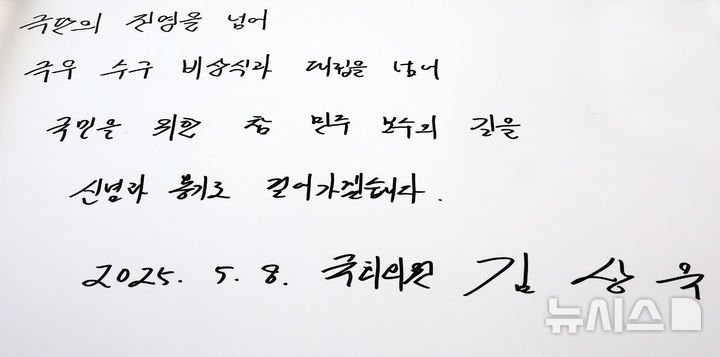 극단의 진영을 넘어
극우 수구 비상식과 대립을 넘어
국민을 위한 참 민주 보수의 길을
신념과 용기로 걸어가겠습니다.
2025. 5. 8. 국회의원 김상욱
뉴시스